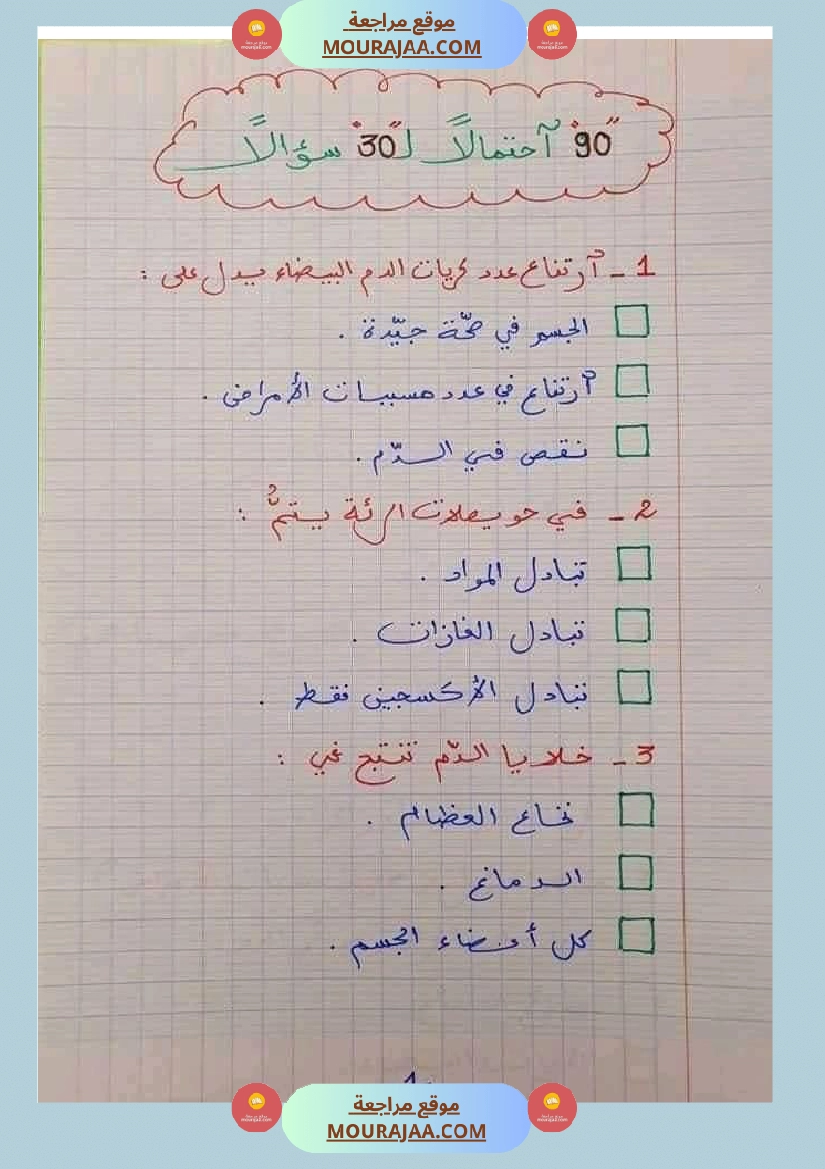 موقع مراجعة
MOURAJAA.COM
"90" آحتمالًا لـ"30" سؤالًا
1 - آرتفاع عدد كريات الدم البيضاء يدل على :
الجسم في صحّة جيّدة .
آرتفاع في عدد مسببات الأمراض .
نقص في الدّم .
2 - في حويصلات الرئة يتمُّ :
تبادل المواد .
تبادل الغازات .
تبادل الأكسجين فقط .
3 - خلايا الدّم تنتج في :
نخاع العظام .
الدماغ .
كل أعضاء الجسم .
موقع مراجعة
MOURAJAA.COM